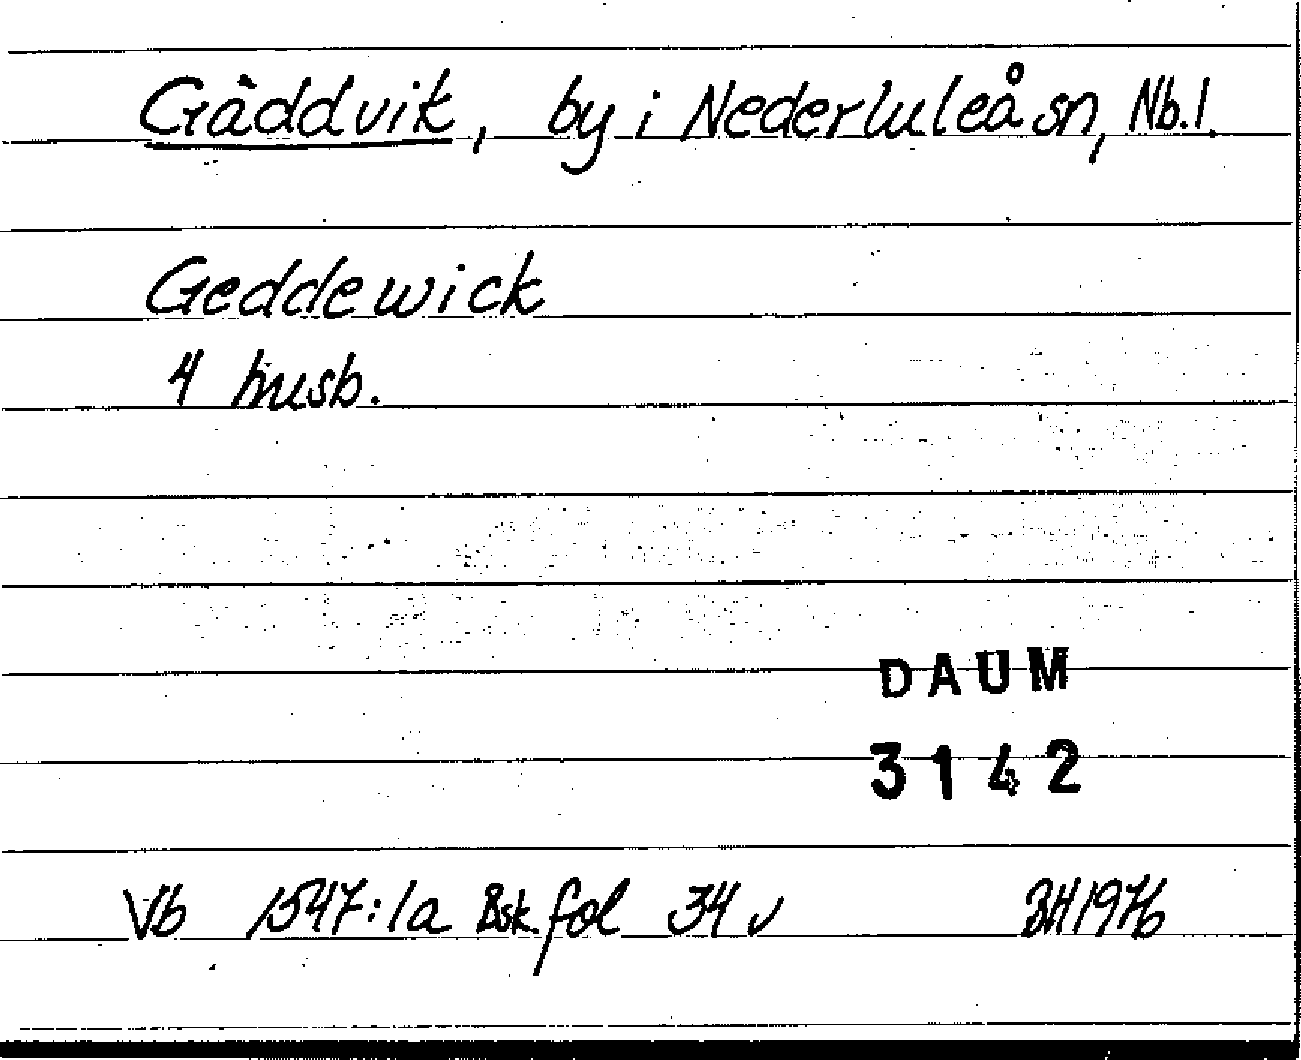 Gäddvik, by i Nederluleå sn, Nb.l.
Geddewick
4 husb.
DAUM
3142
Vb 1547:1a Bsk. fol 34 v
1976